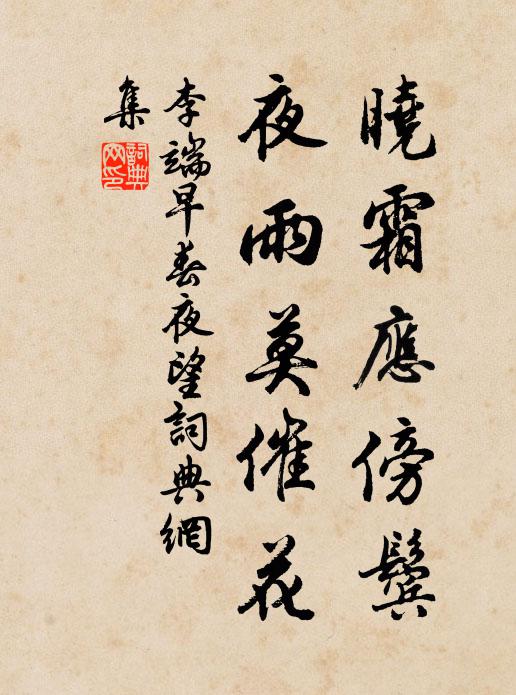 曉霜應傍鬢
夜雨莫催花
李端早春夜望詞典網
集
詞典
网印